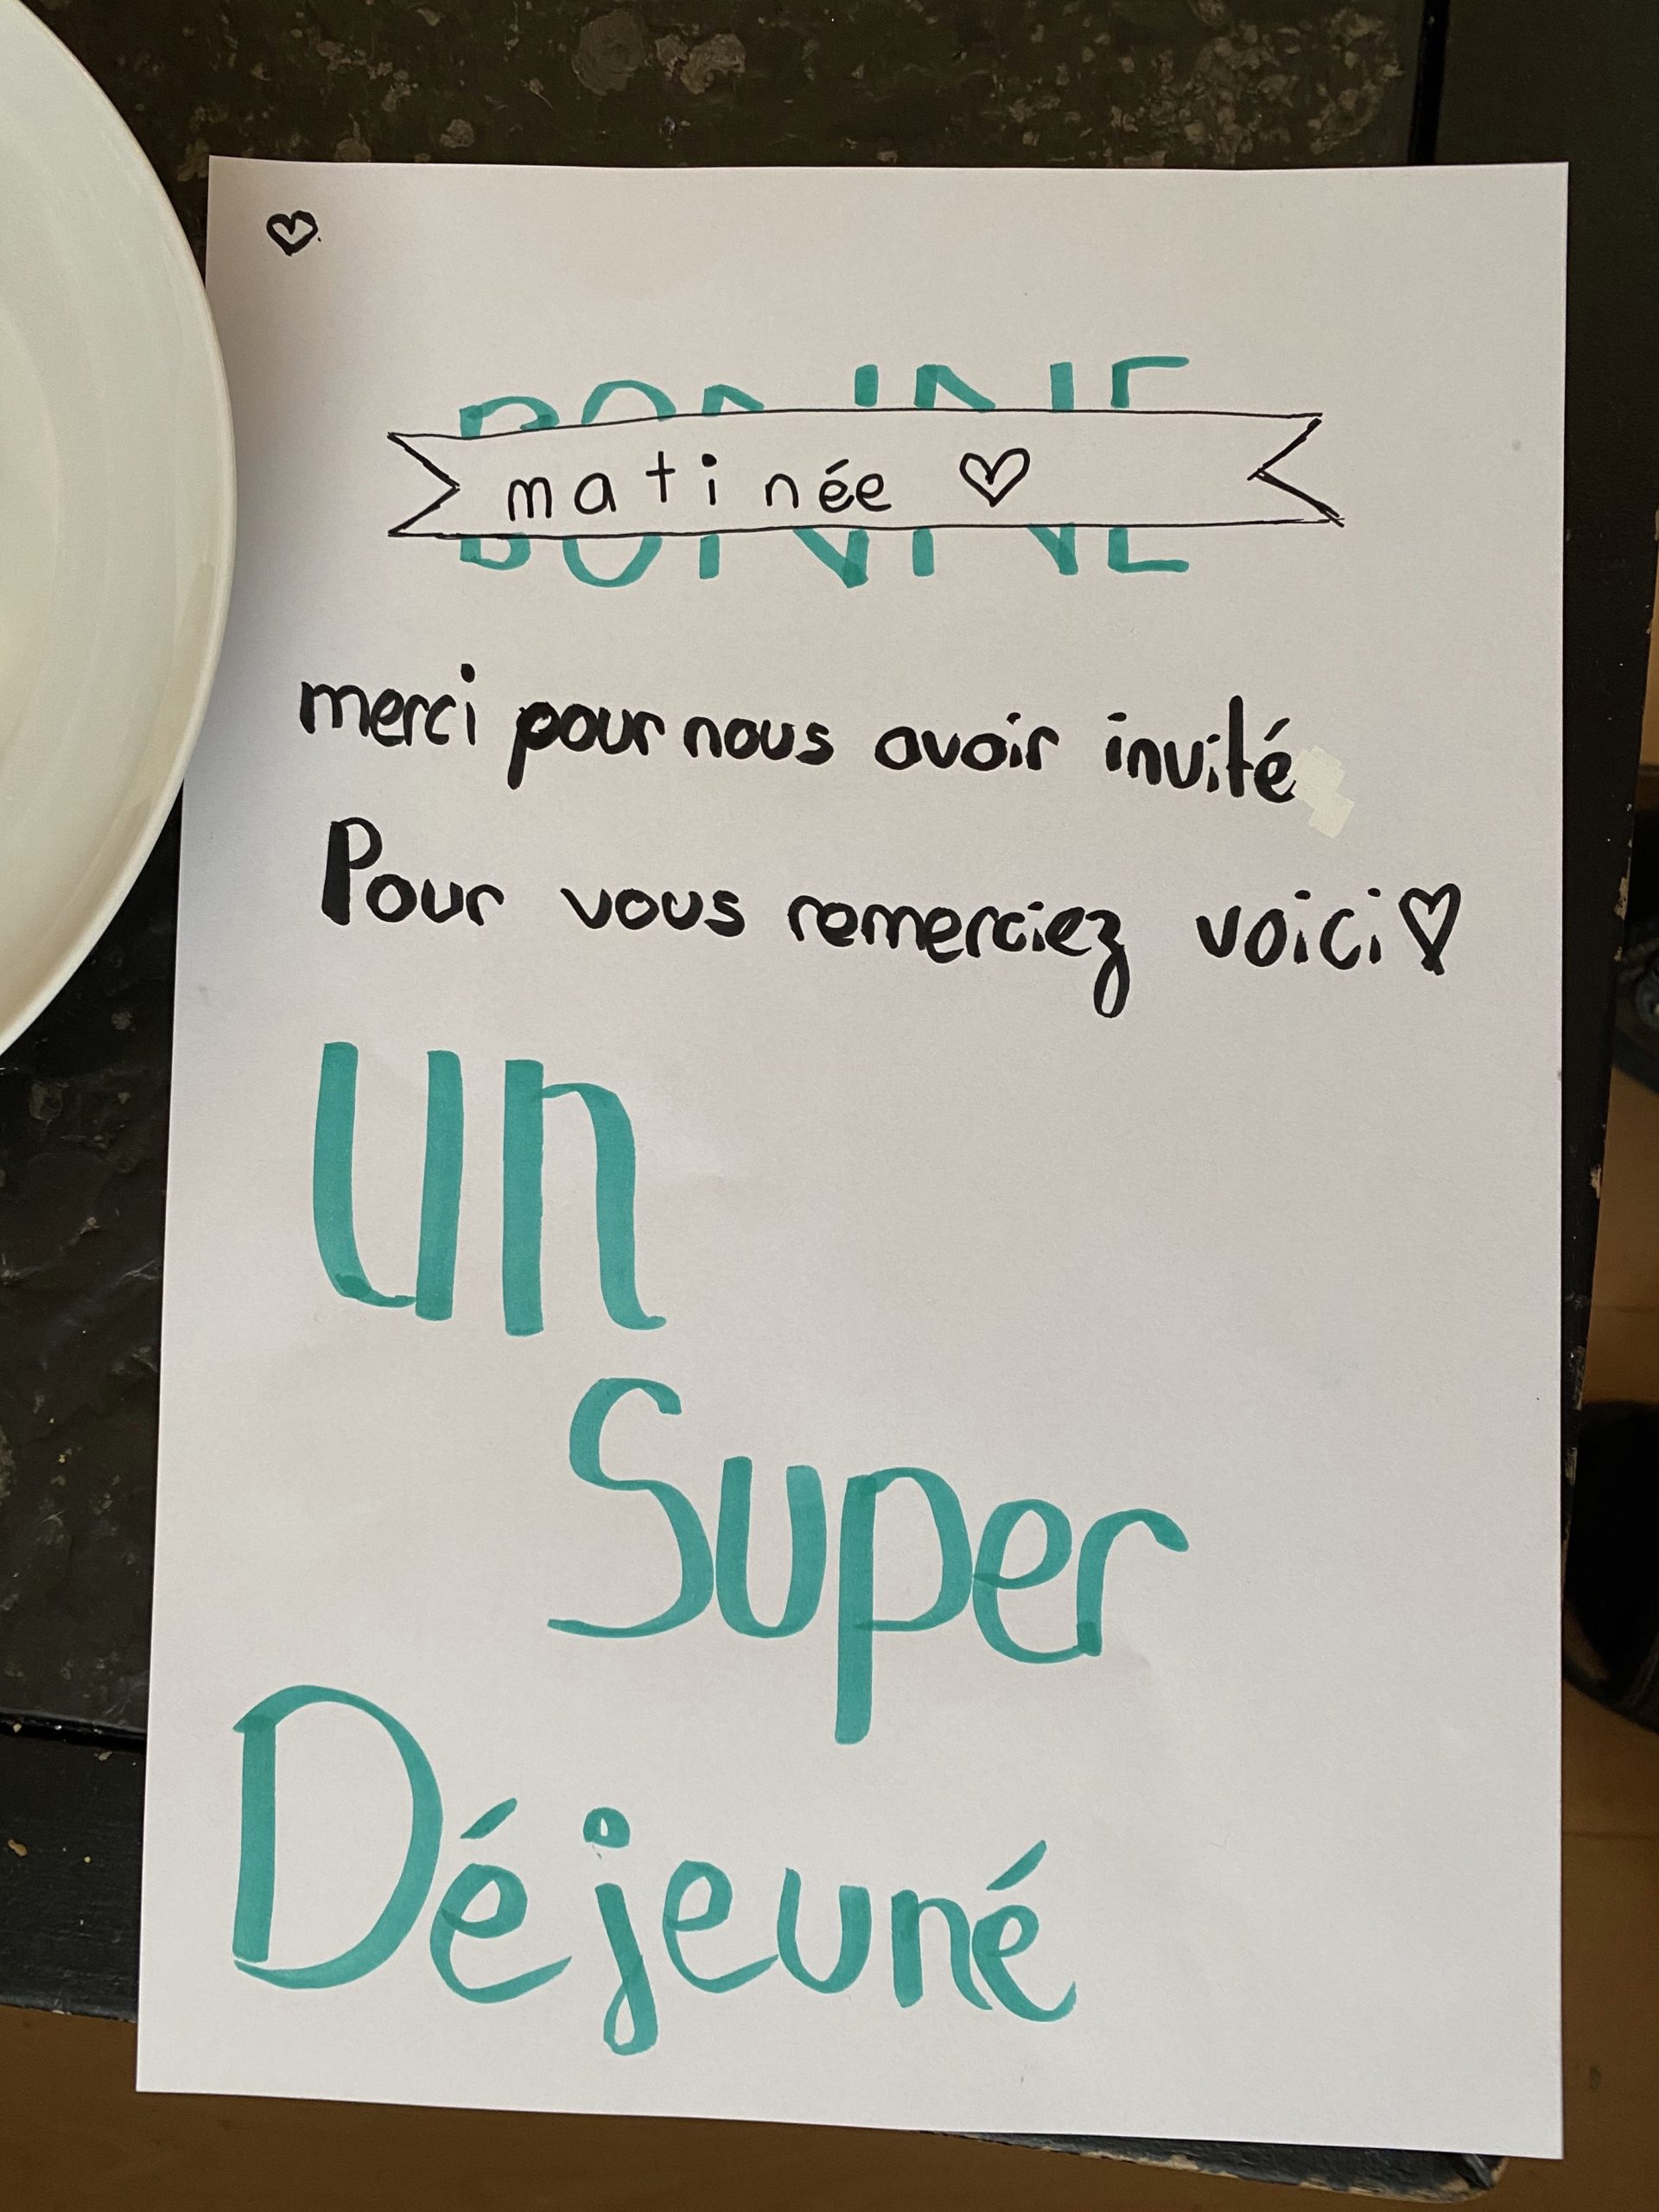 BONNE
matinée ♡
merci pour nous avoir invité
Pour vous remerciez voici ♡
un
Super
Déjeuné